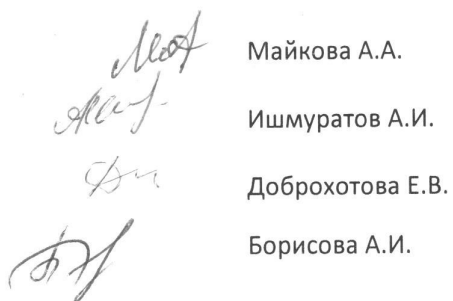 Майкова А.А.
Ишмуратов А.И.
Доброхотова Е.В.
Борисова А.И.